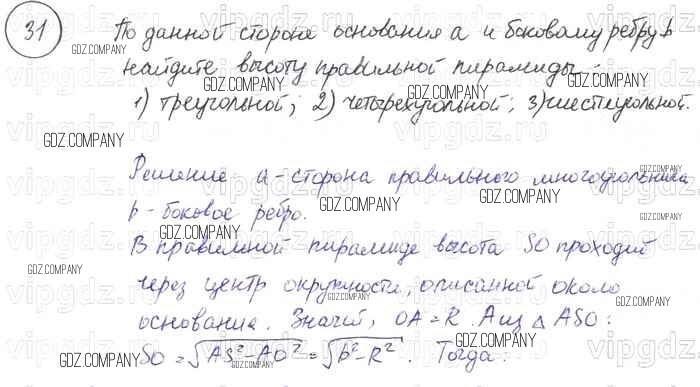 31 По данной стороне основания a и боковому ребру b
найдите высоту правильной пирамиды:
1) треугольной; 2) четырехугольной; 3) шестиугольной.
Решение a - сторона правильного многоугольника
b - боковое ребро.
В правильной пирамиде высота SO проходит
через центр окружности, описанной около
основания. Значит, OA = R. А из △ ASO:
SO = √AS² - AO² = √b² - R². Тогда:
GDZ.COMPANY
vipgdz.ru